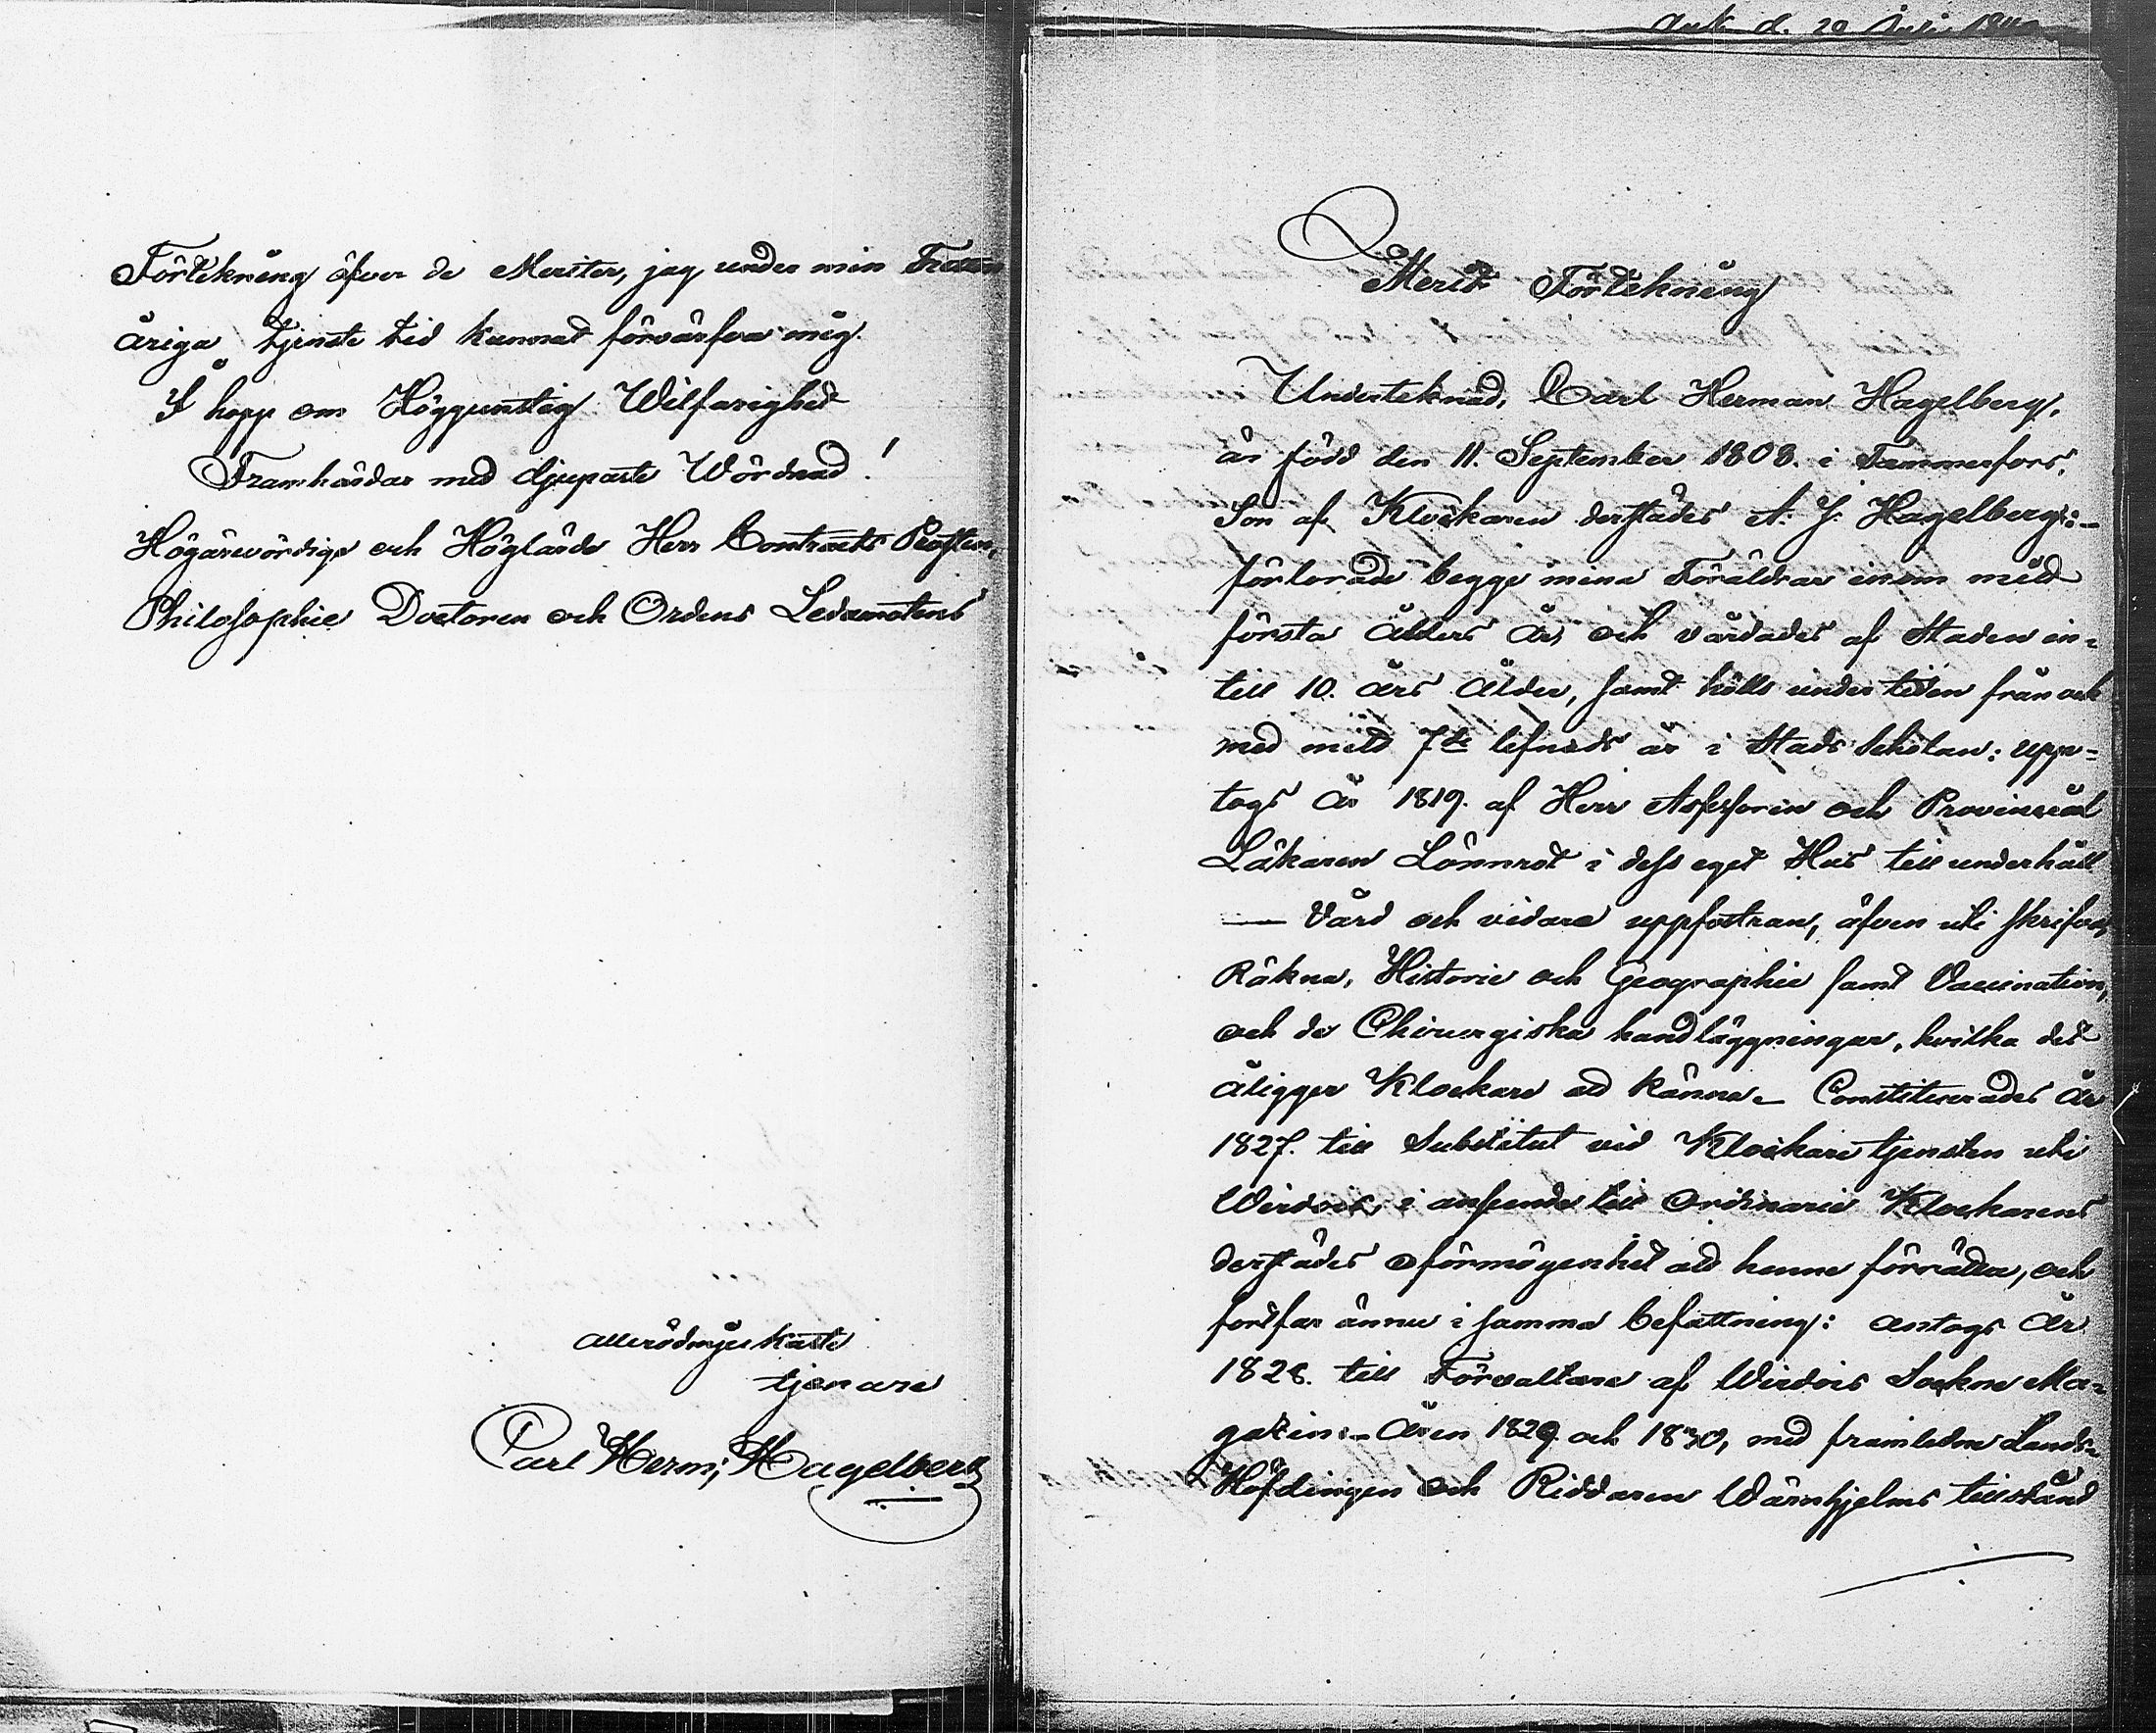 Förtekning öfver de Meriter, jag under min
åriga tjenste tid kunnat förvärfva mig.
I hopp om Höggunstig Wilfarighet
Framhärdar med djupaste Wördnad!
Högärevördige och Höglärde Herr Contracts Prosten,
Philosophie Doctoren och Ordens Ledamotens
allerödmjukaste
tjenare
Carl Herm; Hagelberg
Ank d. 20 Juli
Merit Förtekning
Underteknad, Carl Herman Hagelberg,
är född den 11. September 1808. i Tammerfors,
Son af Klockaren derstädes A. J. Hagelberg:-
förlorade begge mina Föräldrar inom mitt
första ålders år, och vårdades af Staden in-
till 10. års ålder, samt hölls under tiden från och
med mitt 7de lefnads år i Stads Scholan: upp-
togs år 1819. af Herr Assessoren och Provincial
Läkaren Lönnrot i dess eget Hus till underhåll
— Vård och vidare uppfostran, äfven uti skrifva,
Räkna, Historie och Geographie samt Vaccination,
och de Chirurgiska handläggningar, hvilka det
åligger Klockare att känna - Constituerades år
1827. till Substitut vid Klockare tjensten uti
Wirdois, i anseende till Ordinarie Klockarens
derstädes oförmögenhet att henne förrätta, och
fortfar ännu i samma befattning: antogs år
1828. till Förvaltare af Wirdois Sockne Ma-
gazin:- Åren 1829 och 1830, med framledne Lands-
Höfdingen och Riddaren Wärnhjelms tillstånd